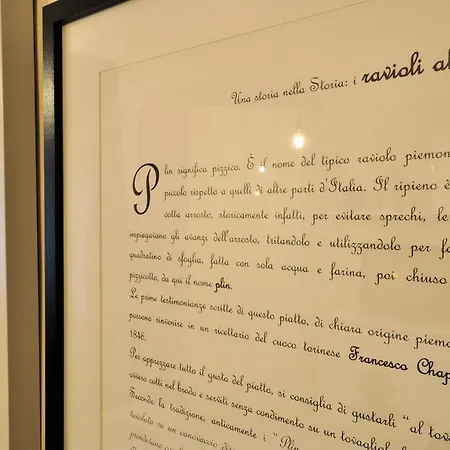 Una storia nella Storia: i ravioli al
Plin significa pizzico. È il nome del tipico raviolo piemon
piccolo rispetto a quelli di altre parti d'Italia. Il ripieno è
cotta arrosto, storicamente infatti, per evitare sprechi, le
impiegavano gli avanzi dell'arrosto, tritandolo e utilizzandolo per fa
quadratino di sfoglia, fatta con sola acqua e farina, poi chiuso
pizzicotto, da qui il nome plin.
Le prime testimonianze scritte di questo piatto, di chiara origine piemo
possono rinvenire in un ricettario del cuoco torinese Francesco Chap
1846.
Per apprezzare tutto il gusto del piatto, si consiglia di gustarli "al tova
ovvero cotti nel brodo e serviti senza condimento su un tovagliolo
Secondo la tradizione, anticamente i "Plin
tavolata su un canovaccio di
prendevano co